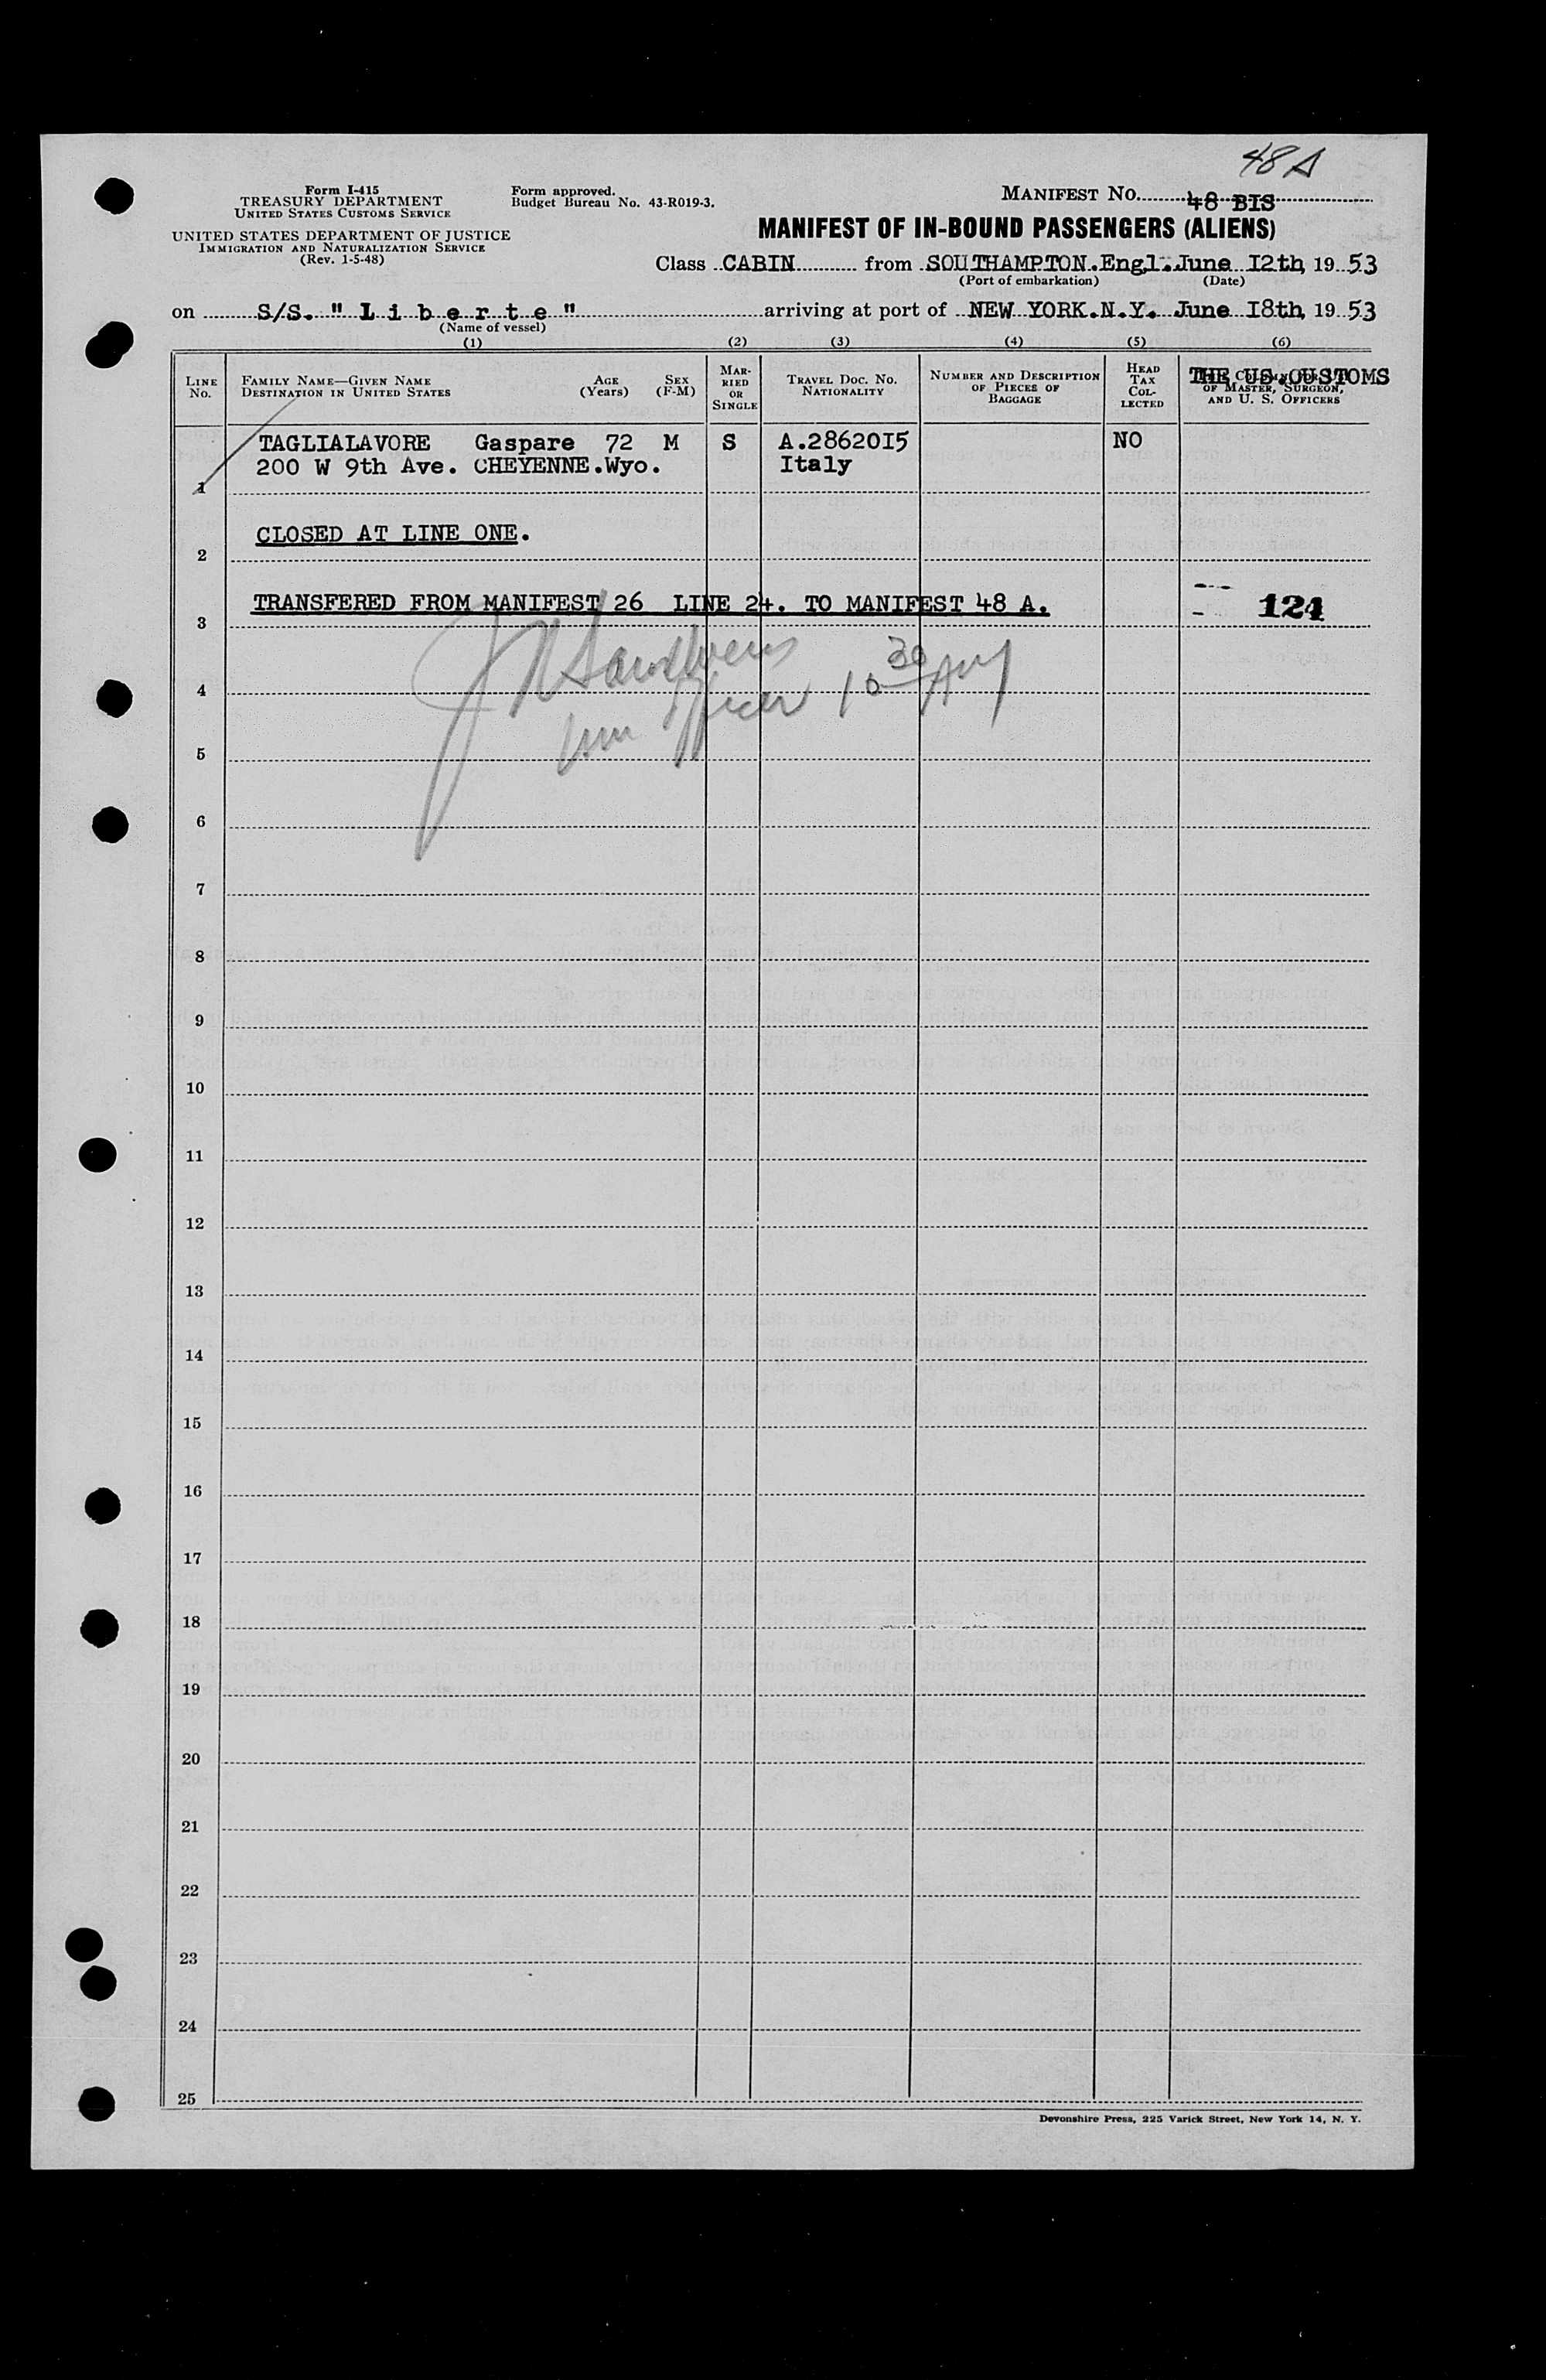 48 A
Form I-415
TREASURY DEPARTMENT
UNITED STATES CUSTOMS SERVICE
UNITED STATES DEPARTMENT OF JUSTICE
IMMIGRATION AND NATURALIZATION SERVICE
(Rev. 1-5-48)
Form approved.
Budget Bureau No. 43-R019-3.
MANIFEST NO. 48 BIS
MANIFEST OF IN-BOUND PASSENGERS (ALIENS)
Class CABIN from SOUTHAMPTON.Engl. June I2th, 19 53
(Port of embarkation) (Date)
on S/S. " L i b e r t e " arriving at port of NEW YORK.N.Y. June I8th, 19 53
(Name of vessel)
(1) (2) (3) (4) (5) (6)
LINE No.
FAMILY NAME—GIVEN NAME
DESTINATION IN UNITED STATES
AGE (Years)
SEX (F-M)
MARRIED OR SINGLE
TRAVEL DOC. NO.
NATIONALITY
NUMBER AND DESCRIPTION OF PIECES OF BAGGAGE
HEAD TAX COLLECTED
THE US.CUSTOMS
OF MASTER, SURGEON,
AND U. S. OFFICERS
TAGLIALAVORE Gaspare 72 M S A.28620I5 NO
200 W 9th Ave. CHEYENNE.Wyo. Italy
1
CLOSED AT LINE ONE.
2
TRANSFERED FROM MANIFEST 26 LINE 24. TO MANIFEST 48 A. 124
3
4
Imm Officer 10 30 AM
5
6
7
8
9
10
11
12
13
14
15
16
17
18
19
20
21
22
23
24
25
Devonshire Press, 225 Varick Street, New York 14, N. Y.